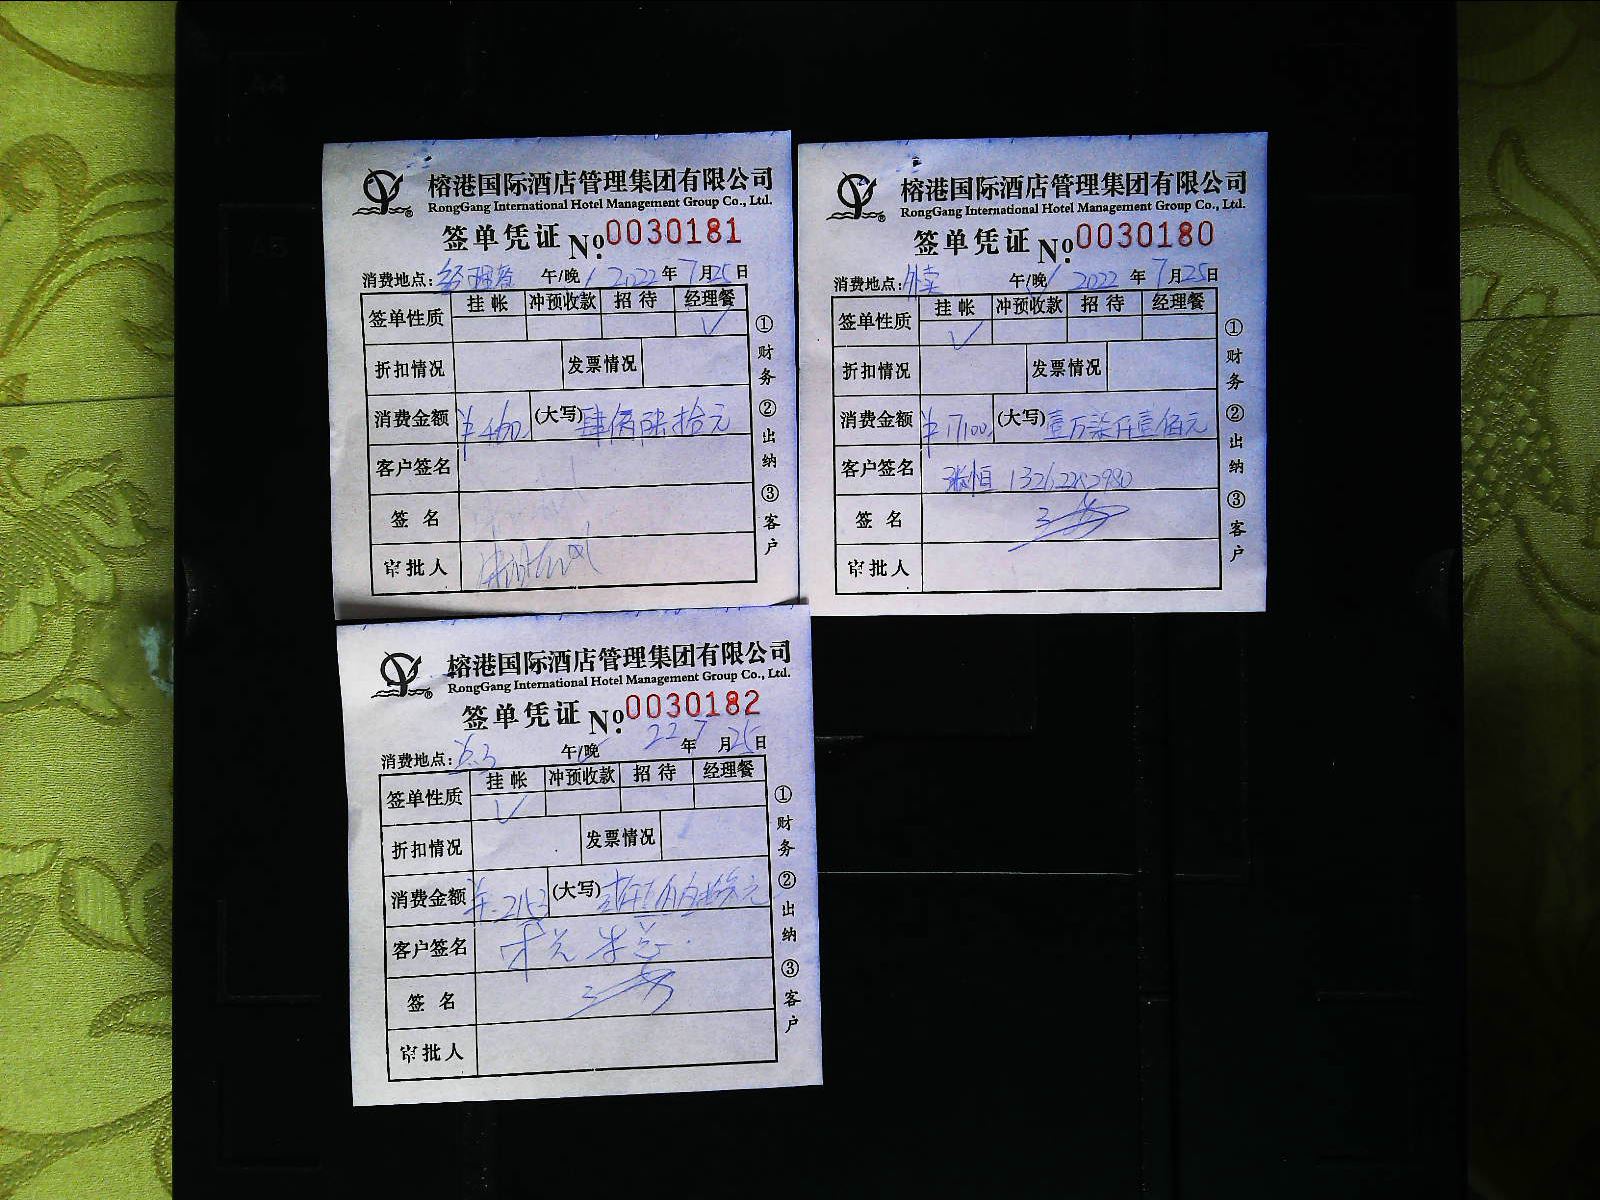 榕港国际酒店管理集团有限公司
RongGang International Hotel Management Group Co., Ltd.
签单凭证 No. 0030181
消费地点: 经理餐 午/晚 2022 年 7 月 25 日
签单性质 挂帐 冲预收款 招待 经理餐
✓
折扣情况 发票情况
消费金额 ¥460. (大写) 肆佰陆拾元
客户签名
签名
审批人
①财务 ②出纳 ③客户
榕港国际酒店管理集团有限公司
RongGang International Hotel Management Group Co., Ltd.
签单凭证 No. 0030180
消费地点: 外卖 午/晚 2022 年 7 月 25 日
签单性质 挂帐 冲预收款 招待 经理餐
✓
折扣情况 发票情况
消费金额 ¥17100. (大写) 壹万柒仟壹佰元
客户签名 张恒
签名
审批人
①财务 ②出纳 ③客户
榕港国际酒店管理集团有限公司
RongGang International Hotel Management Group Co., Ltd.
签单凭证 No. 0030182
消费地点: 午/晚 22 年 7 月 25 日
签单性质 挂帐 冲预收款 招待 经理餐
✓
折扣情况 发票情况
消费金额 (大写)
客户签名
签名
审批人
①财务 ②出纳 ③客户